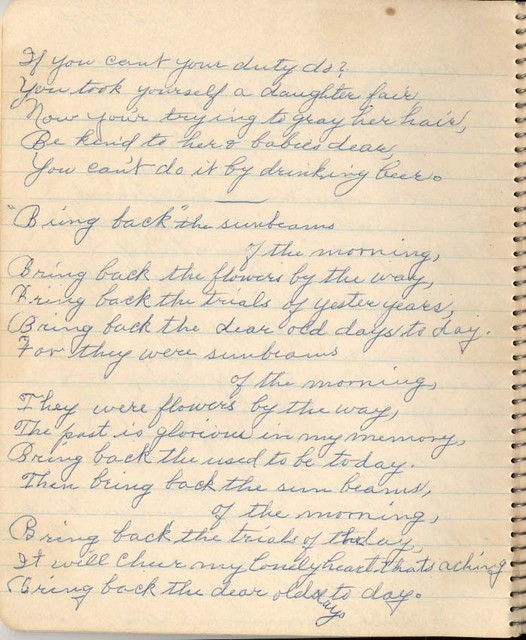 If you can't your duty do?
You took yourself a daughter fair,
Now your trying to gray her hair,
Be kind to her & babies dear,
You can't do it by drinking beer.
"Bring back" the sunbeams
of the morning,
Bring back the flowers by the way,
Bring back the trials of yester years,
Bring back the dear old days to day.
For they were sunbeams
of the morning,
They were flowers by the way,
The past is glorious in my memory,
Bring back the used to be today.
Then bring back the sun beams,
of the morning,
Bring back the trials of the day,
It will cheer my lonely heart thats aching
Bring back the dear old days to day.